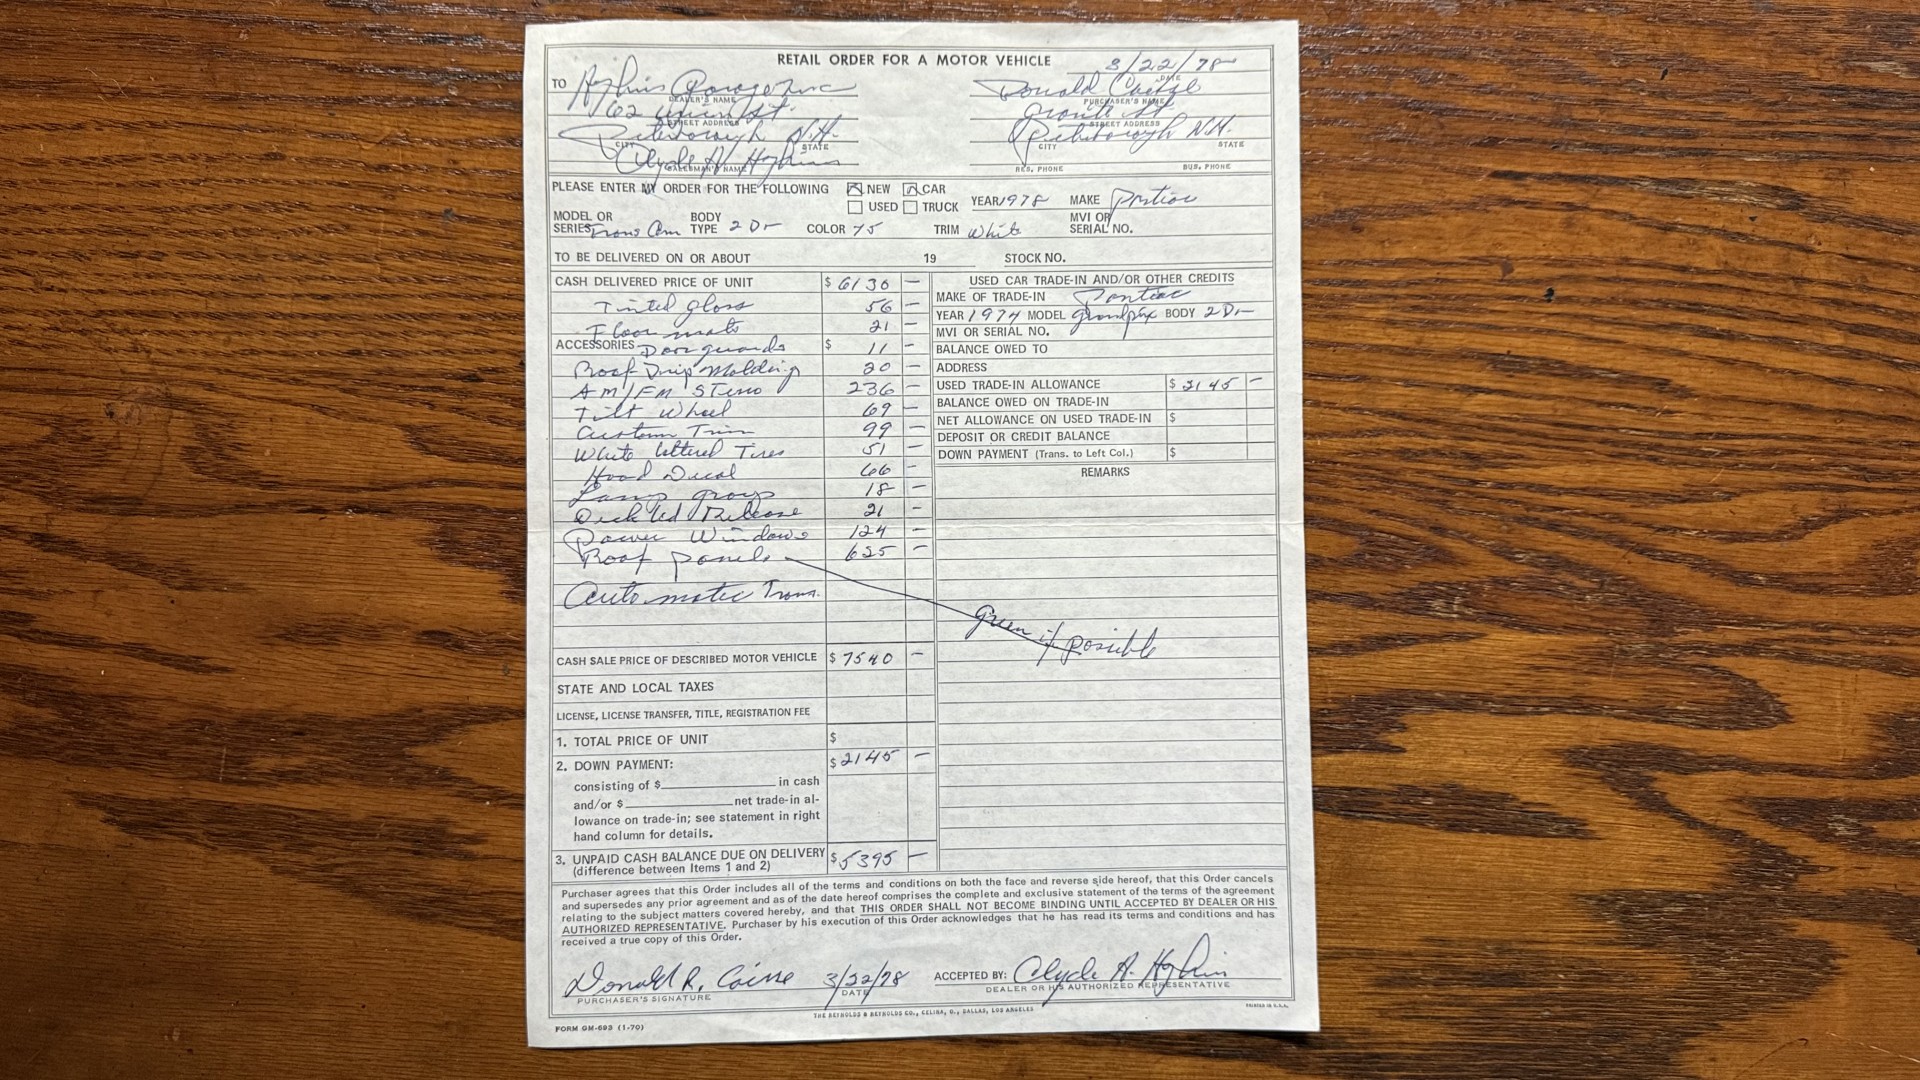 RETAIL ORDER FOR A MOTOR VEHICLE
3/22/78
DATE
TO Garage Inc
DEALER'S NAME
62 Union St.
STREET ADDRESS
Peterborough N.H.
CITY STATE
Clyde A.
SALESMAN'S NAME
Donald
PURCHASER'S NAME
St
STREET ADDRESS
Peterborough N.H.
CITY STATE
RES. PHONE BUS. PHONE
PLEASE ENTER MY ORDER FOR THE FOLLOWING NEW CAR
USED TRUCK YEAR 1978 MAKE Pontiac
MODEL OR SERIES Trans Am BODY TYPE 2 Dr COLOR 75 TRIM White MVI OR SERIAL NO.
TO BE DELIVERED ON OR ABOUT 19 STOCK NO.
CASH DELIVERED PRICE OF UNIT $ 6130 —
Tinted glass 56 —
Floor mats 21 —
ACCESSORIES Door guards $ 11 —
Roof Drip Molding 20 —
AM/FM Stereo 236 —
Tilt Wheel 69 —
Custom Trim 99 —
White lettered Tires 51 —
Hood Decal 66 —
Lamp group 18 —
Deck lid Release 21 —
Power Windows 124 —
Roof panels 625 —
Automatic Trans.
CASH SALE PRICE OF DESCRIBED MOTOR VEHICLE $ 7540 —
STATE AND LOCAL TAXES
LICENSE, LICENSE TRANSFER, TITLE, REGISTRATION FEE
1. TOTAL PRICE OF UNIT $
2. DOWN PAYMENT: $ 2145 —
consisting of $ in cash
and/or $ net trade-in al-
lowance on trade-in; see statement in right
hand column for details.
3. UNPAID CASH BALANCE DUE ON DELIVERY $ 5395 —
(difference between Items 1 and 2)
USED CAR TRADE-IN AND/OR OTHER CREDITS
MAKE OF TRADE-IN Pontiac
YEAR 1974 MODEL Grand Prix BODY 2 Dr
MVI OR SERIAL NO.
BALANCE OWED TO
ADDRESS
USED TRADE-IN ALLOWANCE $ 2145 —
BALANCE OWED ON TRADE-IN
NET ALLOWANCE ON USED TRADE-IN $
DEPOSIT OR CREDIT BALANCE
DOWN PAYMENT (Trans. to Left Col.) $
REMARKS
Green if possible
Purchaser agrees that this Order includes all of the terms and conditions on both the face and reverse side hereof, that this Order cancels
and supersedes any prior agreement and as of the date hereof comprises the complete and exclusive statement of the terms of the agreement
relating to the subject matters covered hereby, and that THIS ORDER SHALL NOT BECOME BINDING UNTIL ACCEPTED BY DEALER OR HIS
AUTHORIZED REPRESENTATIVE. Purchaser by his execution of this Order acknowledges that he has read its terms and conditions and has
received a true copy of this Order.
Donald R. 3/22/78 ACCEPTED BY: Clyde A.
PURCHASER'S SIGNATURE DATE DEALER OR HIS AUTHORIZED REPRESENTATIVE
THE REYNOLDS & REYNOLDS CO., CELINA, O., DALLAS, LOS ANGELES PRINTED IN U.S.A.
FORM GM-693 (1-70)